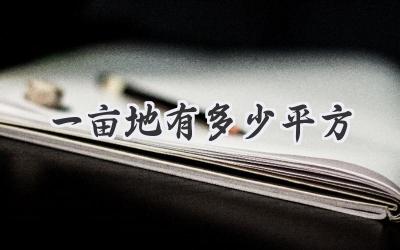 一亩地有多少平方